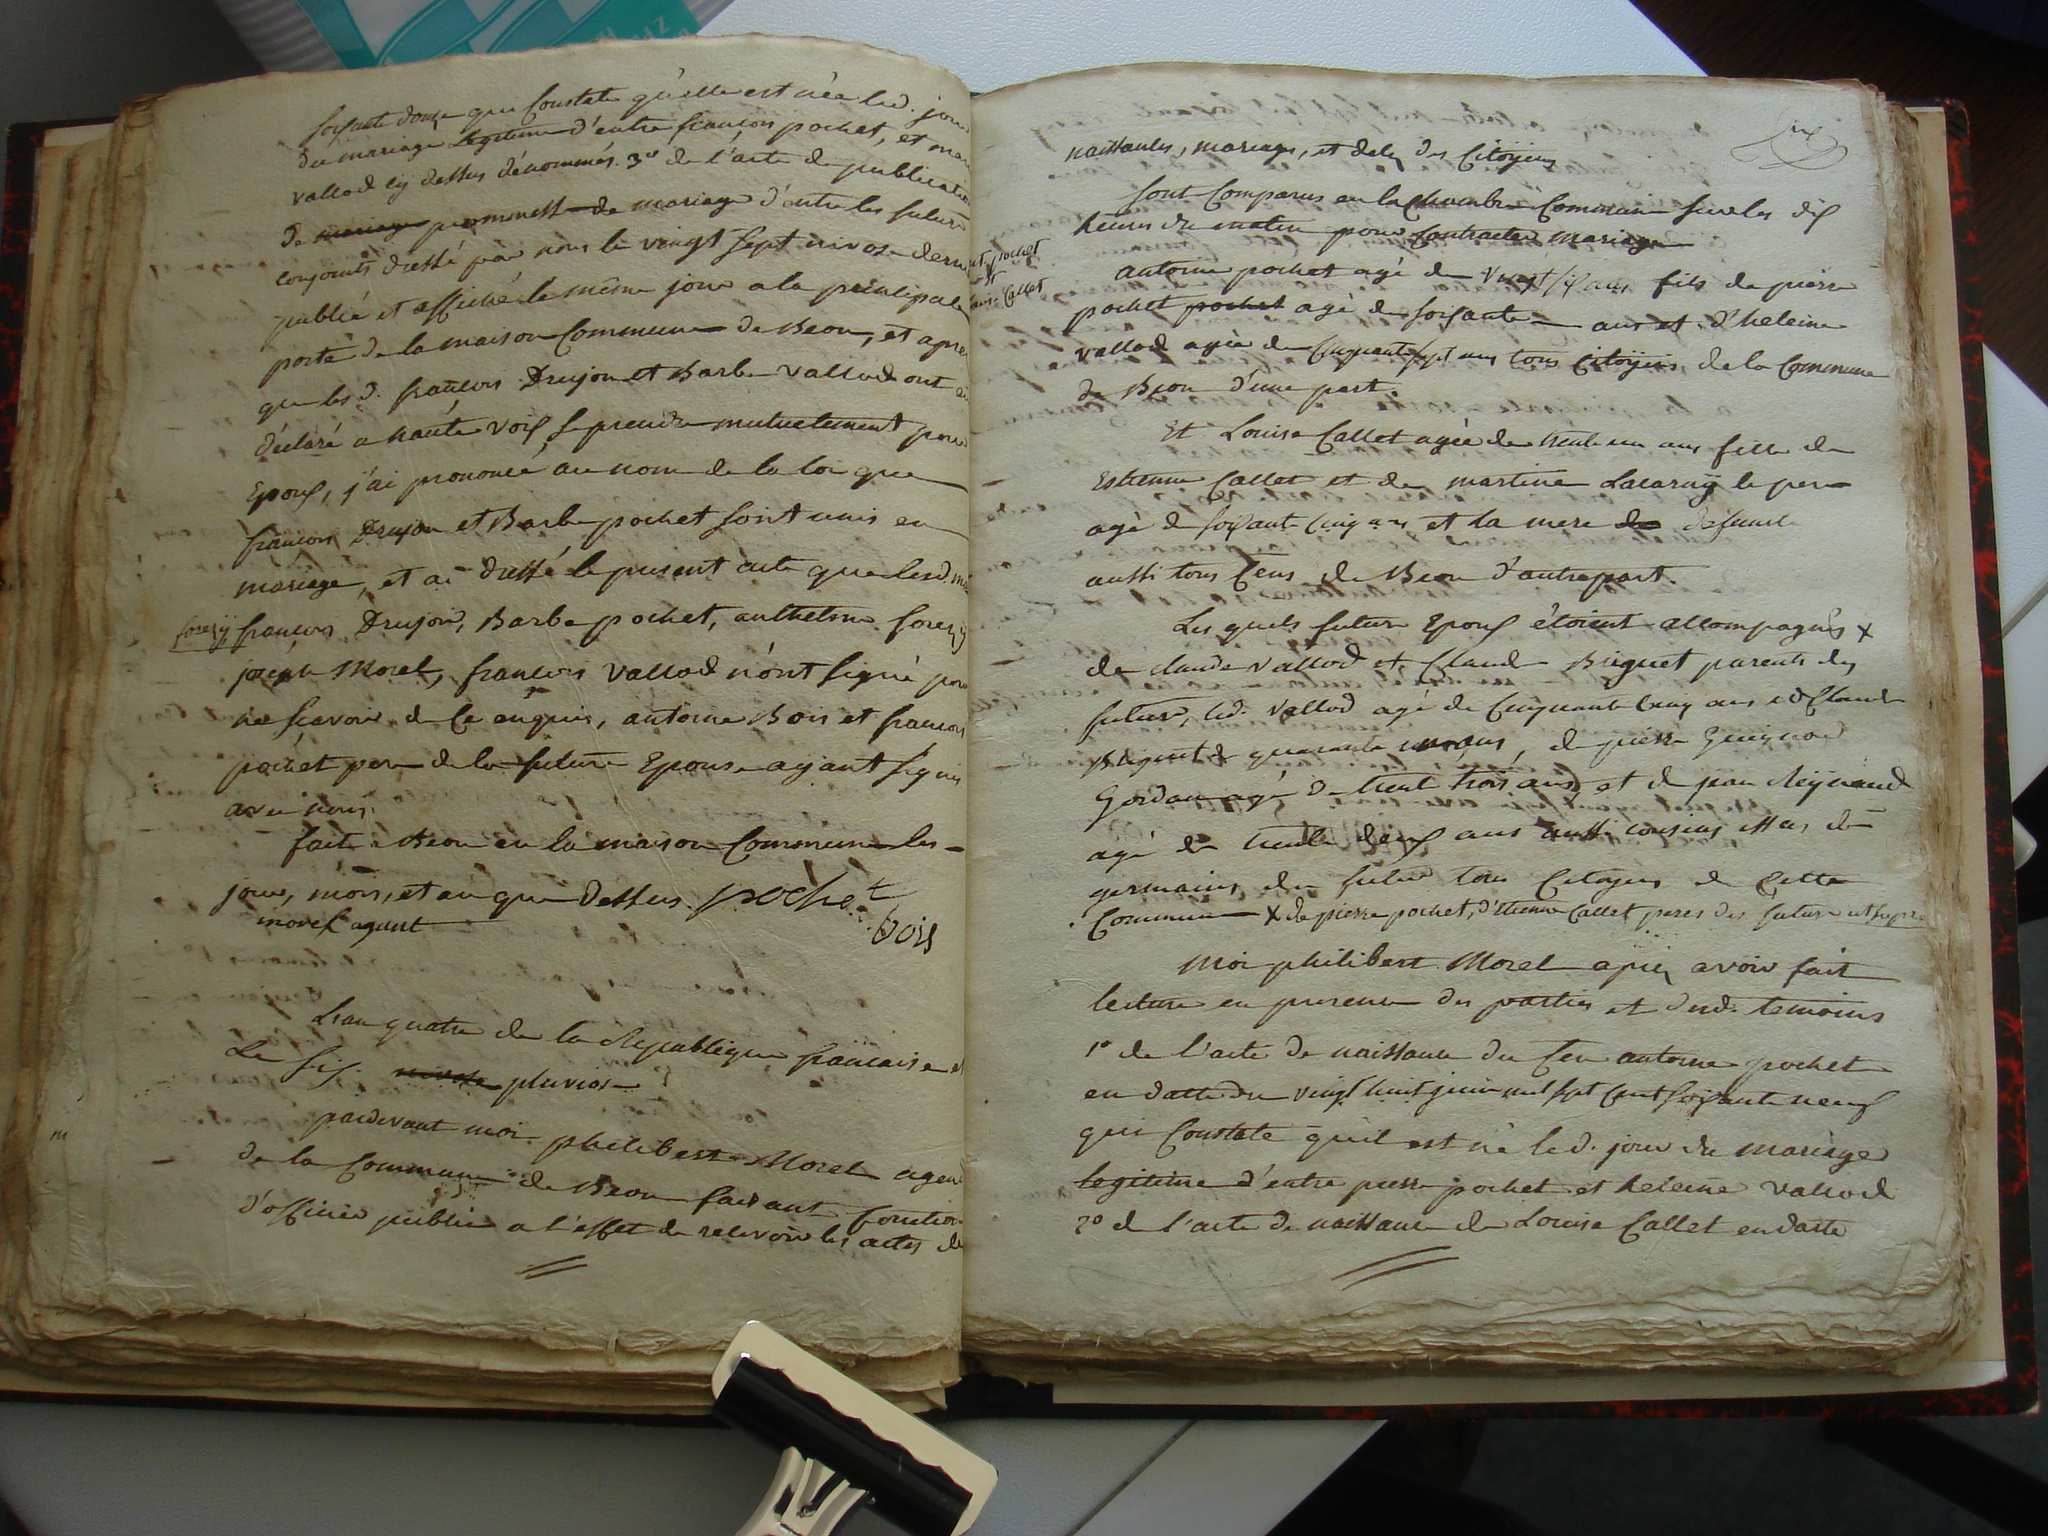 soixante douze que Constate qu'elle est née led. jour
du mariage legitime d'entre françois pochet, et
vallod cy dessus dénommés. 3º de l'acte de publication
de mariage promesse de mariage d'entre les futurs
conjoints dressé par nous le vingt sept nivose dernier
publié et affiché le même jour a la principale
porte de la maison Commune de Beon, et apres
que lesd. françois Drujon et Barbe vallod ont
déclaré a haute voix se prendre mutuelement pour
Epoux, j'ai prononcé au nom de la loi que
françois Drujon et Barbe pochet sont unis en
mariage, et ai dressé le present acte que lesd.
forezÿ françois Drujon, Barbe pochet, anthelme forezÿ
joseph Morel, françois vallod n'ont signé pour
ne scavoir de ce enquis, antoine Bois et françois
pochet pere de la future Epouse ayant signés
avec nous.
fait a Beon en la maison Commune les
jour, mois, et an que dessus. pochet
morel agent
bois
L'an quatre de la Republique française et
Le six nivose pluviose
pardevant moi philibert Morel agent
de la Commune de Beon faisant fonction
d'officier public a l'effet de recevoir les actes de
pochet
et
Callet
naissances, mariages, et deces des Citoÿens
sont Comparus en la Chambre Commune sur les dix
heures du matin pour contracter mariage
antoine pochet agé de vingt six ans fils de pierre
pochet pochet agé de soixante ans et d'heleine
vallod agée de Cinquante sept ans tous Citoÿens de la Commune
de Beon d'une part.
Et Louise Callet agée de trente un ans fille de
Estienne Callet et de martine Lacaruÿ le pere
agé de soixante cinq ans et la mere de defunte
aussi tous Cens de Beon d'autre part.
Les quels futurs Epoux étoient accompagnés x
de claude vallod et Claude Briguet parents des
futurs, led. vallod agé de Cinquante Cinq ans et Claude
Briguet de quarante ans, de pierre Guignod
Gordan agé de trente trois ans, et de jean Reÿnaud
agé de trente deux ans aussi cousins issus de
germains du futur tous Citoÿens de Cette
Commune x de pierre pochet, d'Etienne Callet peres des futurs
Moi philibert Morel apres avoir fait
lecture en presence des parties et desd. temoins
1º de l'acte de naissance du Cen antoine pochet
en datte du vingt huit juin mil sept cent soixante neuf
qui Constate qu'il est né led. jour du mariage
legitime d'entre pierre pochet et heleine vallod
2º de l'acte de naissance de Louise Callet en datte